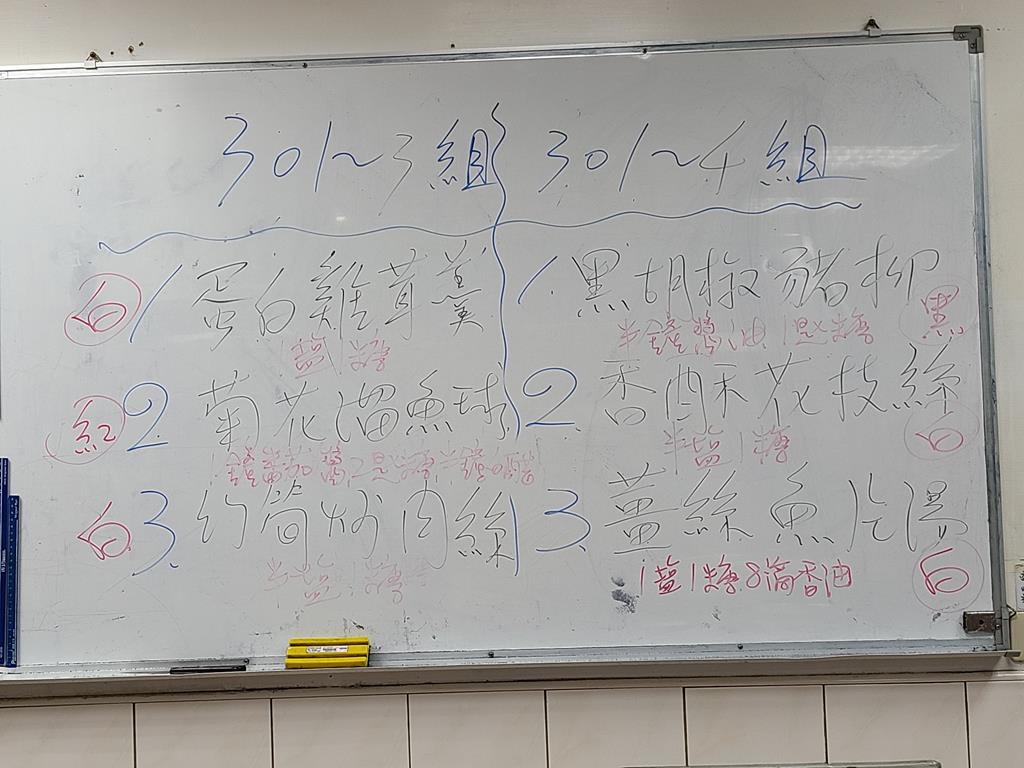 301~3組
白 1 蛋白雞茸羹
1鹽1糖
紅 2. 菊花溜魚球
1鐘蕃茄醬二匙糖半鐘白醋
白 3. 竹筍炒肉絲
半鹽1糖
301~4組
1. 黑胡椒豬柳 黑
半鐘醬油1匙糖
2. 香酥花枝絲 白
半鹽1糖
3. 薑絲魚片湯 白
1鹽1糖8滴香油